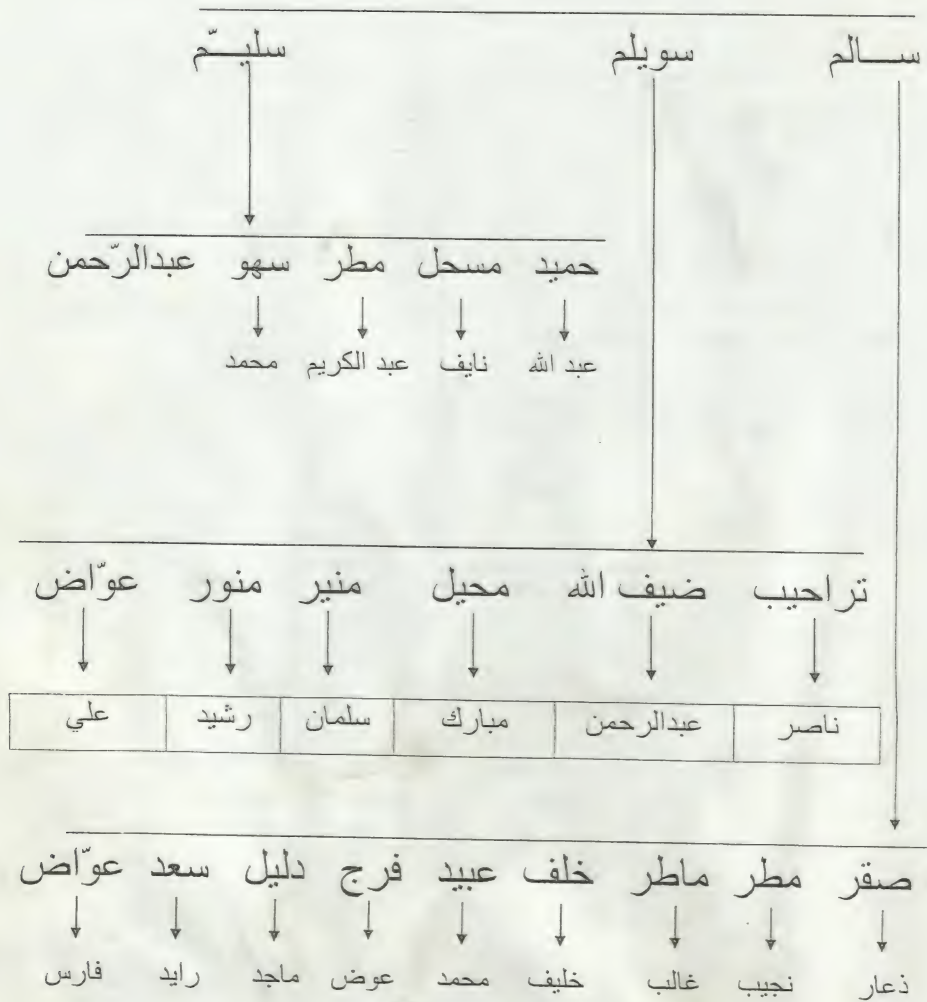 ســالم سويلم سليــّم
حميد مسحل مطر سهو عبدالرّحمن
عبد الله نايف عبد الكريم محمد
تراحيب ضيف الله محيل منير منور عوّاض
ناصر عبدالرحمن مبارك سلمان رشيد علي
صقر مطر ماطر خلف عبيد فرج دليل سعد عوّاض
ذعار نجيب غالب خليف محمد عوض ماجد رايد فارس